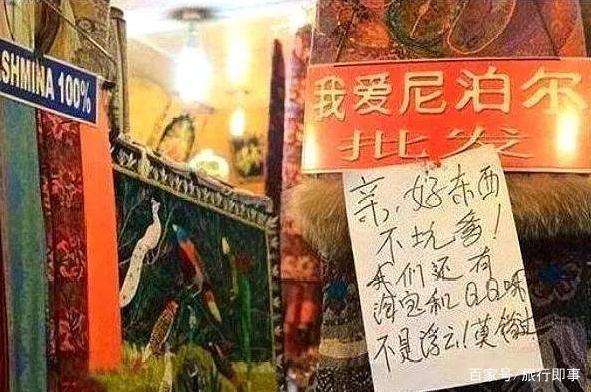 SHMINA 100%
我爱尼泊尔
批发
亲,好东西
不坑爹!
我们还有
淘宝和QQ哦
不是浮云!莫错过!
百家号/旅行即事